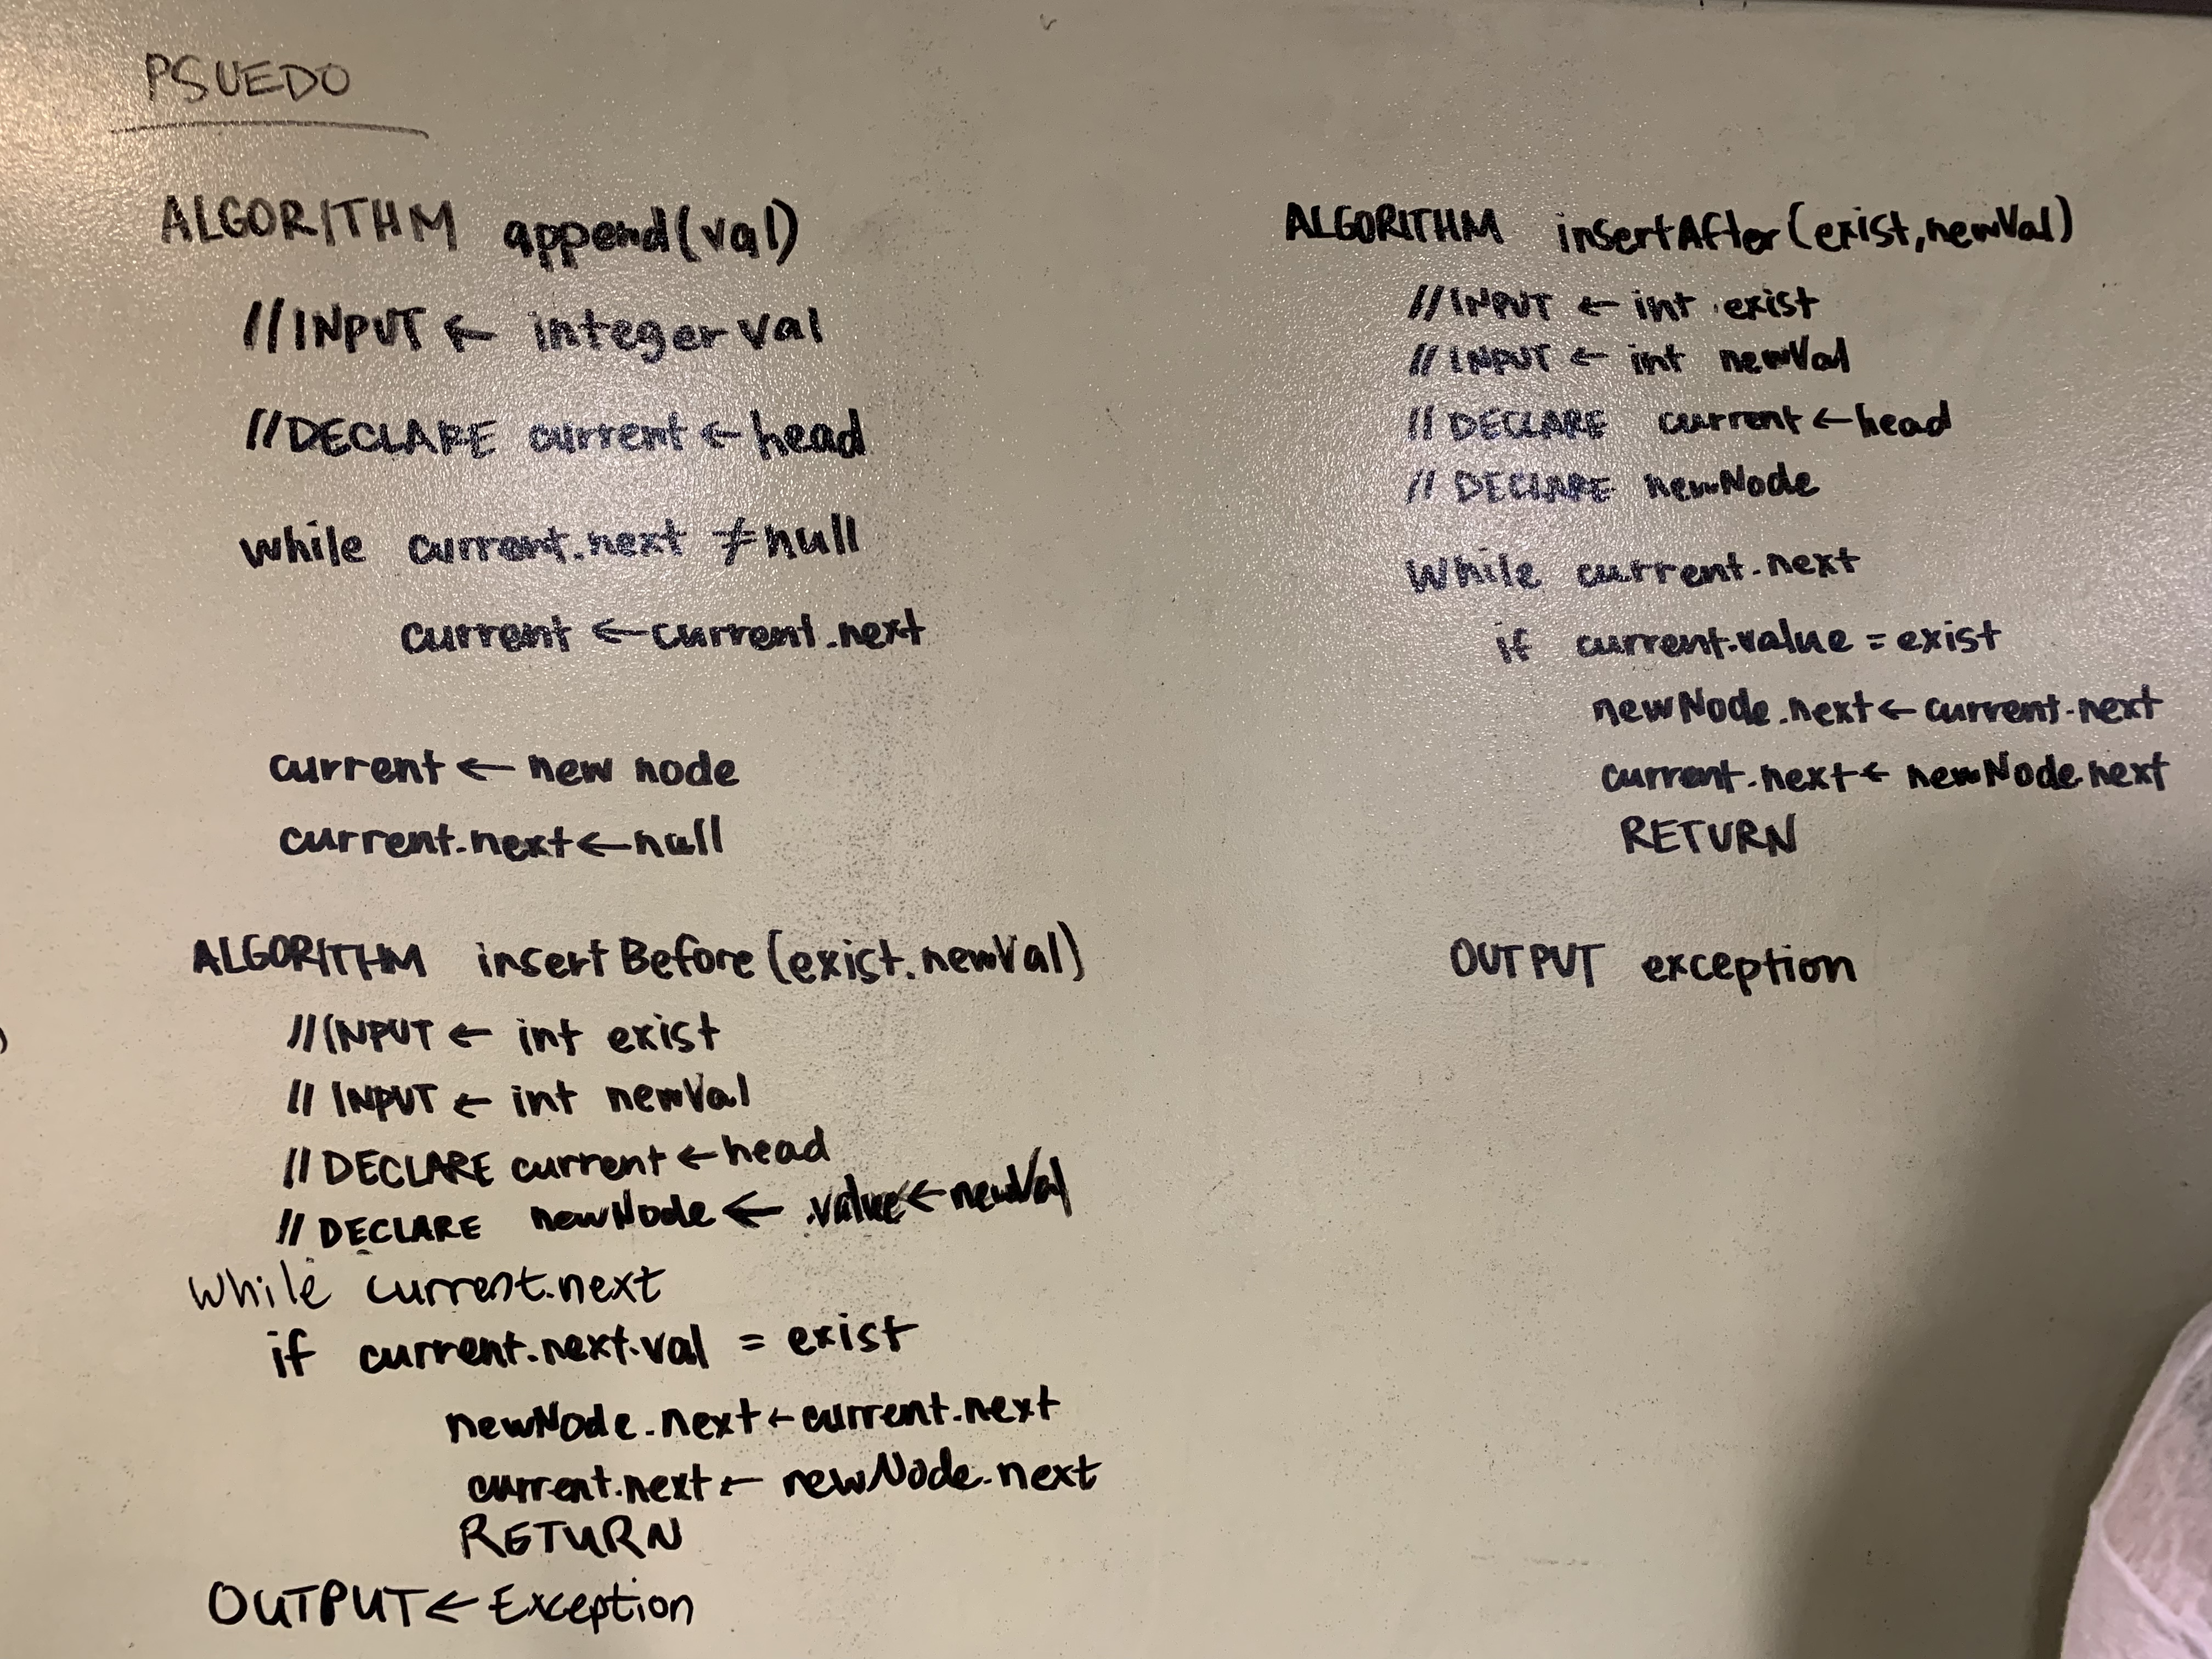 PSUEDO
ALGORITHM append(val)
//INPUT ← integer val
//DECLARE current ← head
while current.next ≠ null
current ← current.next
current ← new node
current.next ← null
ALGORITHM insertBefore(exist.newVal)
//INPUT ← int exist
// INPUT ← int newVal
// DECLARE current ← head
// DECLARE newNode ← .value ← newVal
While current.next
if current.next.val = exist
newNode.next ← current.next
current.next ← newNode.next
RETURN
OUTPUT ← Exception
ALGORITHM insertAfter(exist,newVal)
// INPUT ← int exist
// INPUT ← int newVal
// DECLARE current ← head
// DECLARE newNode
While current.next
if current.value = exist
newNode.next ← current.next
current.next ← newNode.next
RETURN
OUTPUT exception